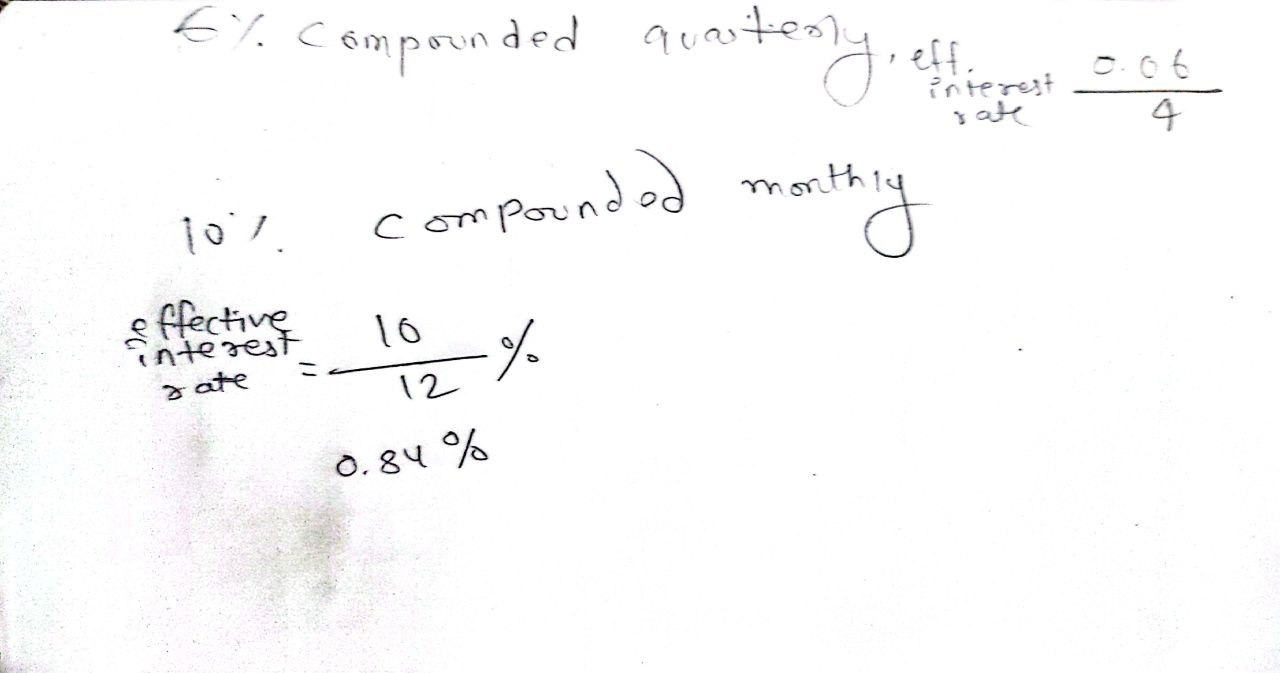 6% compounded quarterly, eff. interest rate 0.06/4
10% compounded monthly
effective interest rate = 10/12 %
0.84 %